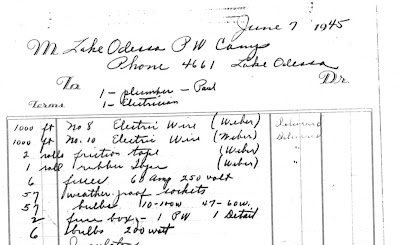 June 7 1945
M Lake Odessa P W Camp
Phone 4661 Lake Odessa
To Dr.
1 - plumber - Paul
Terms 1 - Electrician
1000 ft No 8 Electric Wire (Weber) Delivered
1000 ft No. 10 Electric Wire (Weber) Delivered
2 rolls friction tape (Weber) "
1 roll rubber tape (Weber)
6 fuses 60 amp 250 volt
57 weather proof sockets
57 bulbs 10-100w 47-60w.
2 fuse box - 1 PW 1 Detail
6 bulbs 200 watt